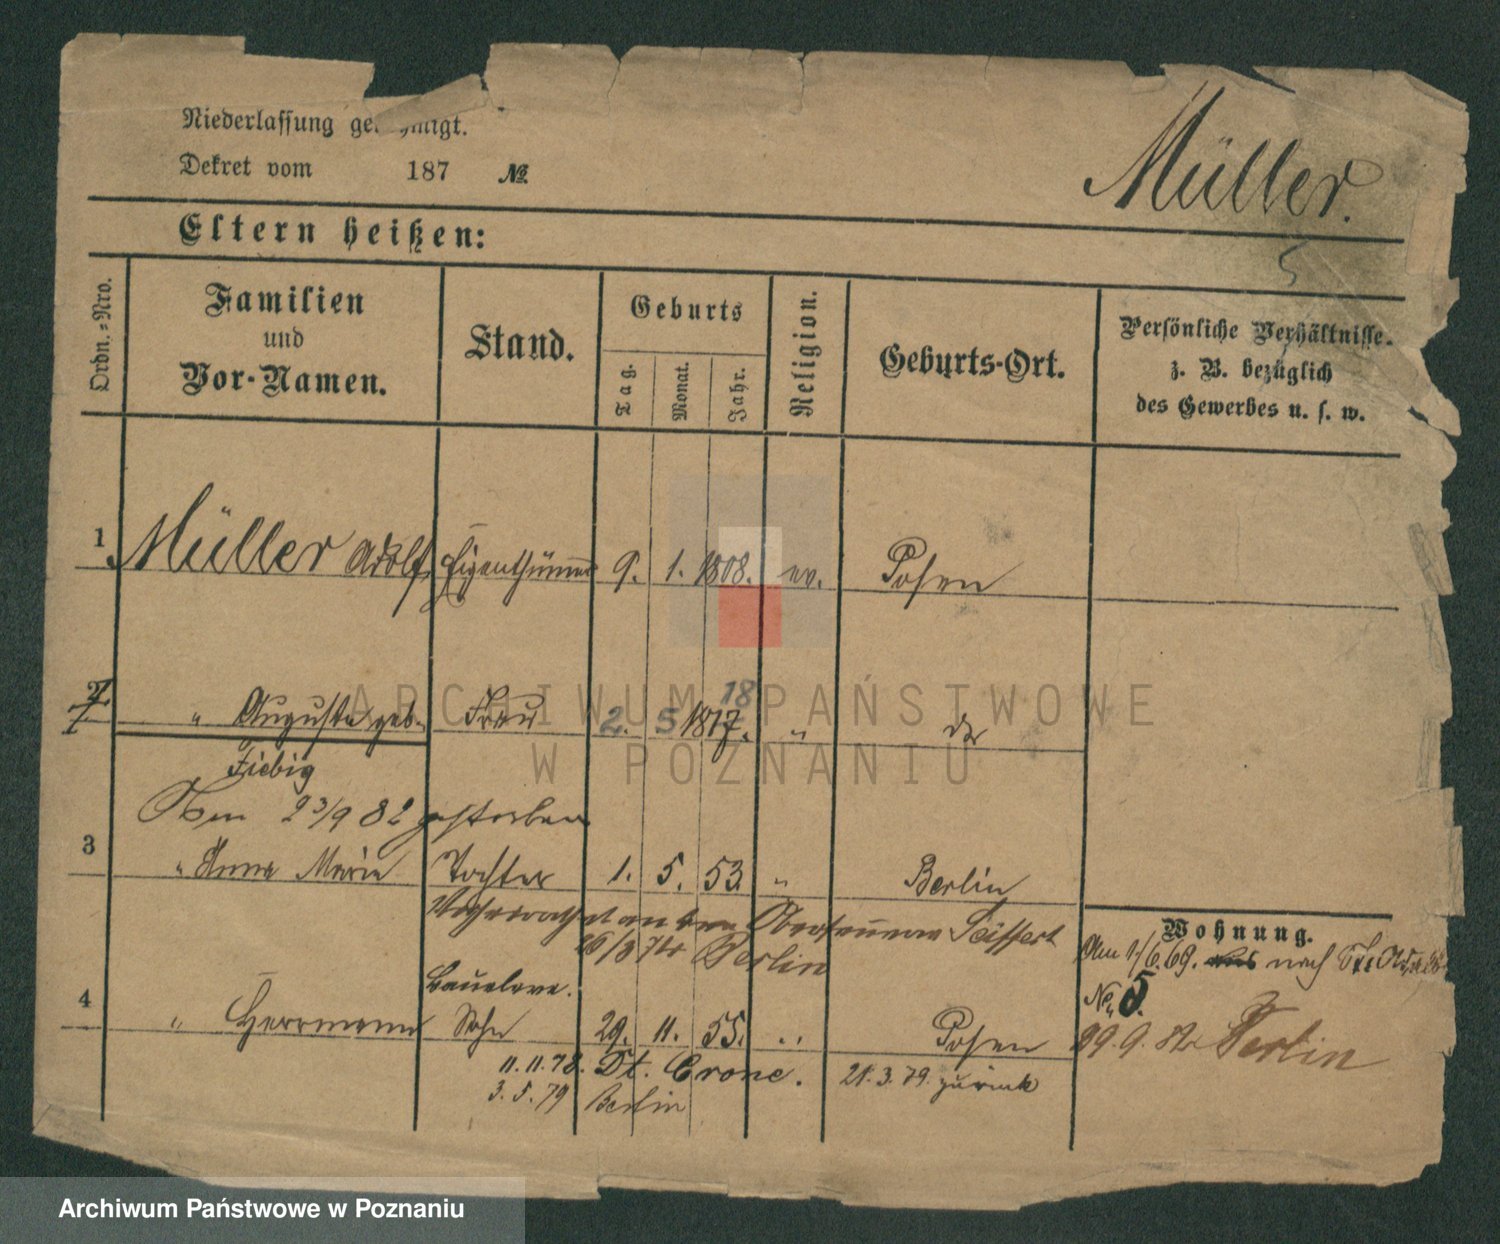 Niederlassung ge hmigt.
Dekret vom 187 №
Müller.
Eltern heißen:
Ordn.=Nro.
Familien
und
Vor-Namen.
Stand.
Geburts
Tag.
Monat.
Jahr.
Religion.
Geburts-Ort.
Persönliche Verhältnisse.
z. B. bezüglich
des Gewerbes u. s. w.
1 Müller Adolf Eigenthümer 9. 1. 1808. ev. Posen
2 " Augusta geb. Frau 2. 5 18 " do
Fiebig
Am 23/9 82 gestorben
3 " Anna Marie Tochter 1. 5. 53. " Berlin
Verheirathet an den Seiffert
Berlin
Wohnung.
Am 1/6.69. nach
No. 5.
4 " Herrmann Sohn 29. 11. 55. " Posen
29.9.82 Berlin
11.11.78. Dt. Crone. 21.3.79. zurück
3.5.79 Berlin
ARCHIWUM PAŃSTWOWE
W POZNANIU
Archiwum Państwowe w Poznaniu